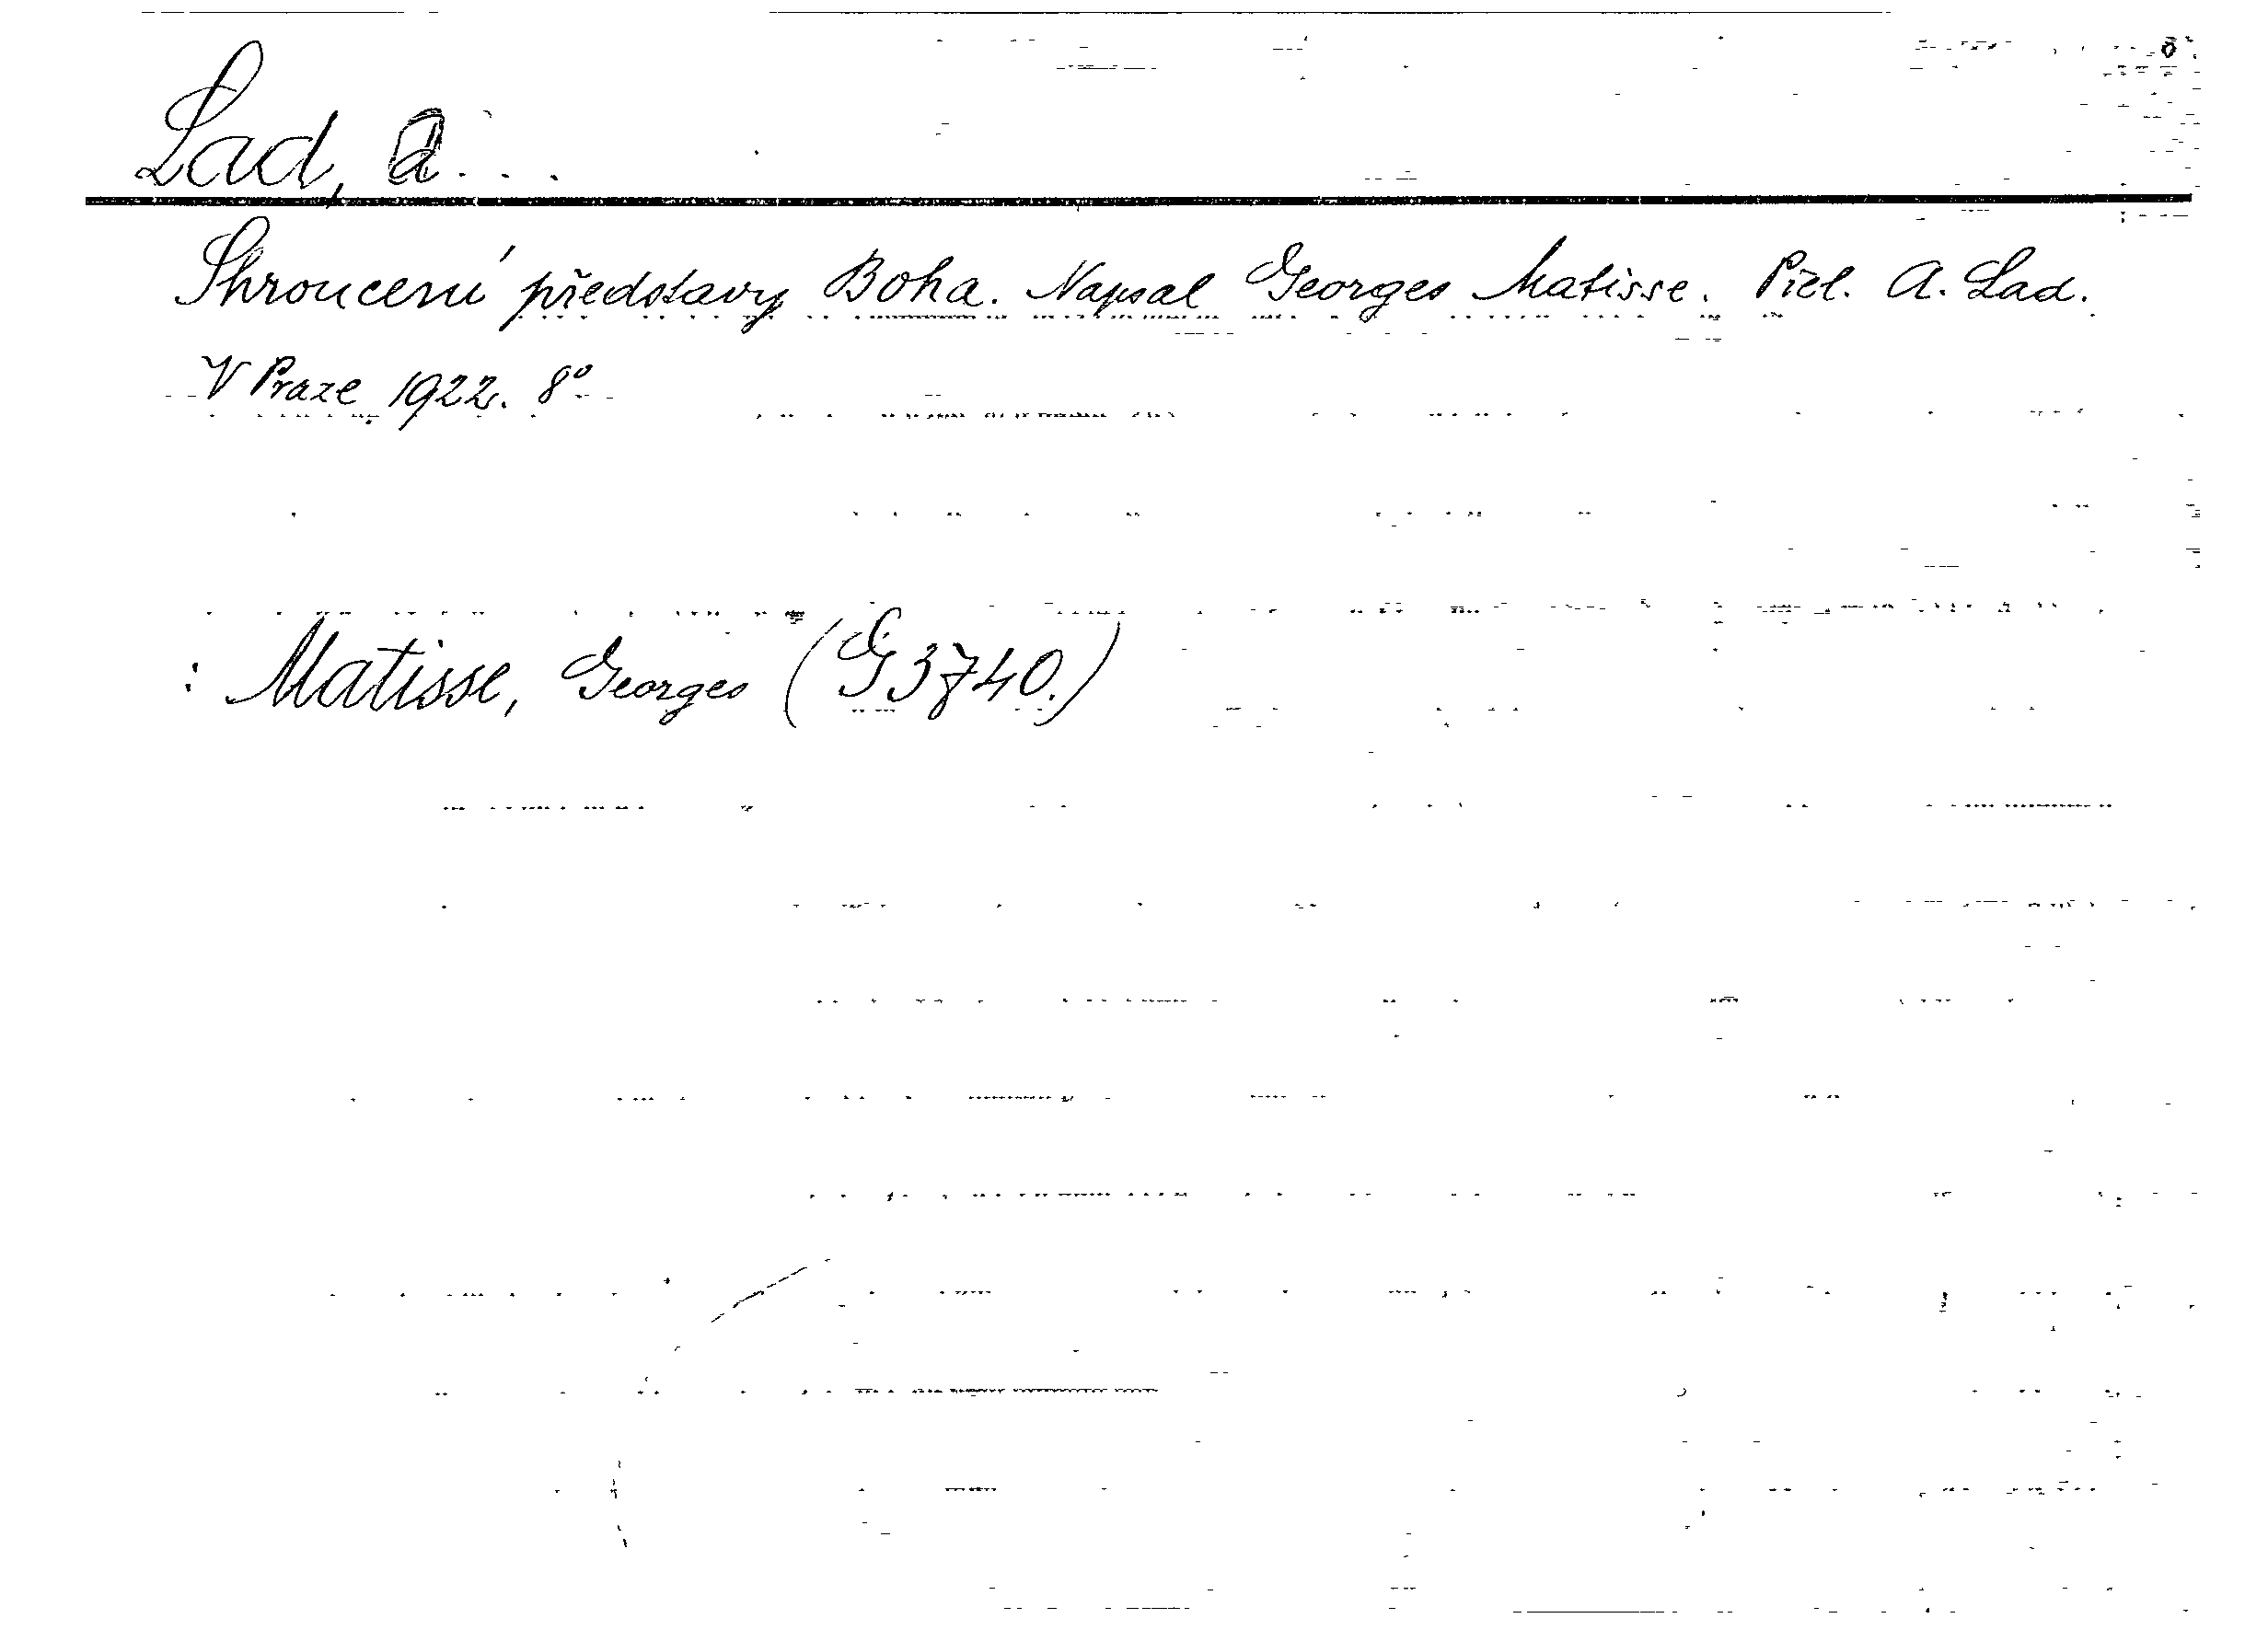 Lad, A...
Shroucení představy Boha. Napsal Georges Matisse. Přel. A. Lad.
V Praze 1922. 8°
: Matisse, Georges (G 3740.)